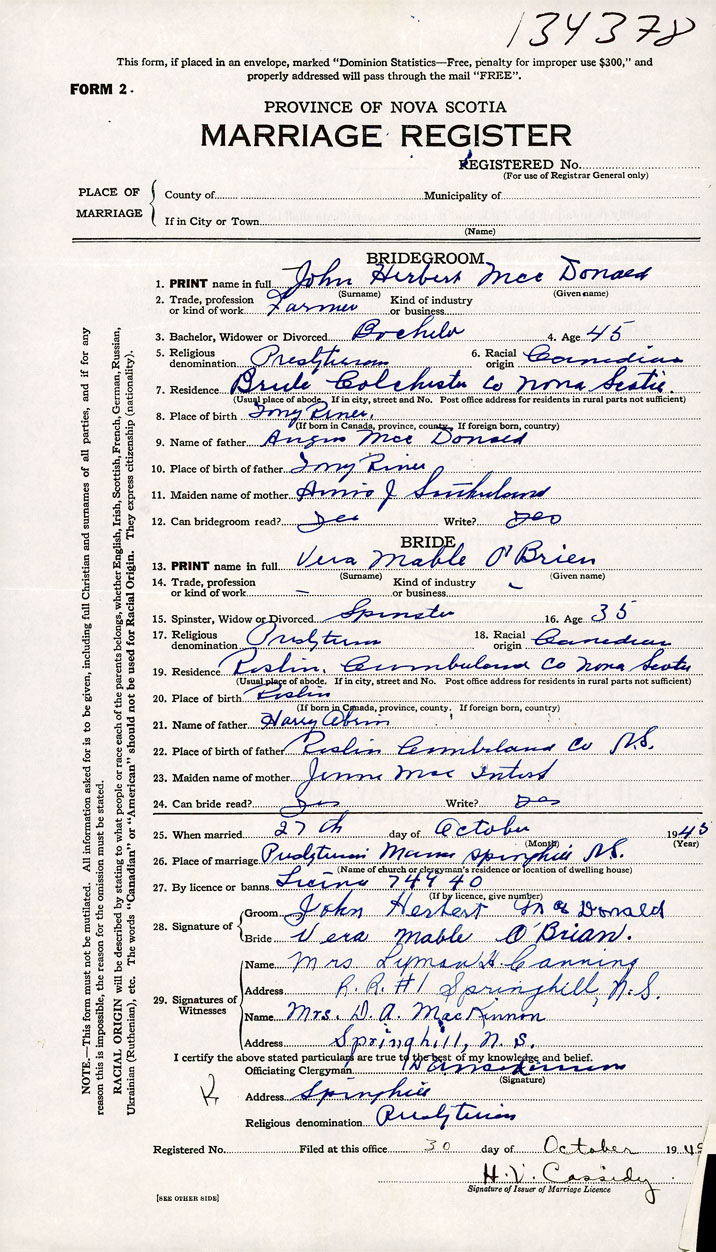 134378
This form, if placed in an envelope, marked “Dominion Statistics—Free, penalty for improper use $300,” and
properly addressed will pass through the mail “FREE”.
FORM 2.
PROVINCE OF NOVA SCOTIA
MARRIAGE REGISTER
REGISTERED No.
(For use of Registrar General only)
PLACE OF MARRIAGE
County of Municipality of
If in City or Town
(Name)
BRIDEGROOM
1. PRINT name in full John Herbert Mac Donald
(Surname) (Given name)
2. Trade, profession or kind of work Farmer Kind of industry or business
3. Bachelor, Widower or Divorced Bachelor 4. Age 45
5. Religious denomination Presbyterian 6. Racial origin Canadian
7. Residence Colchester Co Nova Scotia
(Usual place of abode. If in city, street and No. Post office address for residents in rural parts not sufficient)
8. Place of birth
(If born in Canada, province, county. If foreign born, country)
9. Name of father Angus Mac Donald
10. Place of birth of father
11. Maiden name of mother J Sutherland
12. Can bridegroom read? Yes Write? Yes
BRIDE
13. PRINT name in full Vera Mable O'Brien
(Surname) (Given name)
14. Trade, profession or kind of work – Kind of industry or business –
15. Spinster, Widow or Divorced Spinster 16. Age 35
17. Religious denomination Presbyterian 18. Racial origin Canadian
19. Residence Roslin, Cumberland Co Nova Scotia
(Usual place of abode. If in city, street and No. Post office address for residents in rural parts not sufficient)
20. Place of birth Roslin
(If born in Canada, province, county. If foreign born, country)
21. Name of father Harry Obrien
22. Place of birth of father Roslin Cumberland Co N.S.
23. Maiden name of mother Jennie Mac
24. Can bride read? Yes Write? Yes
25. When married 27th day of October 1945
(Month) (Year)
26. Place of marriage Presbyterian Manse Springhill N.S.
(Name of church or clergyman's residence or location of dwelling house)
27. By licence or banns 74940
(If by licence, give number)
28. Signature of
Groom John Herbert Mac Donald
Bride Vera Mable O'Brian.
29. Signatures of Witnesses
Name Mrs Lyman H. Canning
Address R.R.#1 Springhill, N.S.
Name Mrs. D. A. MacKinnon
Address Springhill, N.S.
I certify the above stated particulars are true to the best of my knowledge and belief.
Officiating Clergyman D A MacKinnon
(Signature)
Address Springhill
Religious denomination Presbyterian
Registered No. Filed at this office 30 day of October 1945
H.V. Cassidy
Signature of Issuer of Marriage Licence
[SEE OTHER SIDE]
NOTE.—This form must not be mutilated. All information asked for is to be given, including full Christian and surnames of all parties, and if for any
reason this is impossible, the reason for the omission must be stated.
RACIAL ORIGIN will be described by stating to what people or race each of the parents belongs, whether English, Irish, Scottish, French, German, Russian,
Ukrainian (Ruthenian), etc. The words “Canadian” or “American” should not be used for Racial Origin. They express citizenship (nationality).